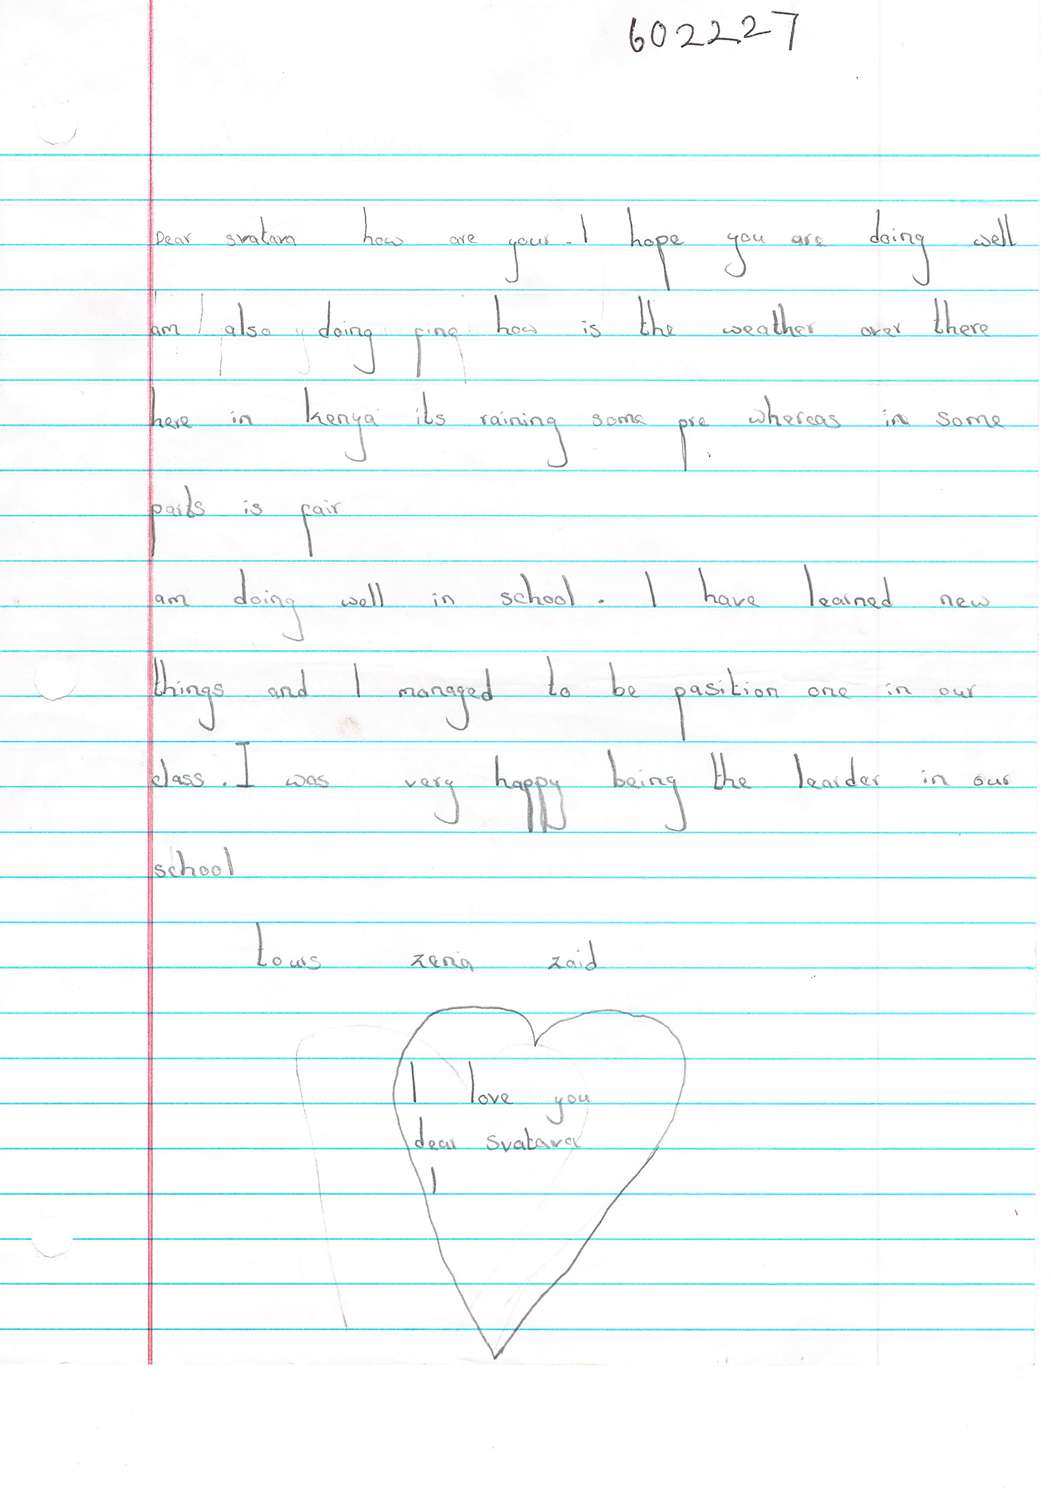 602227
Dear svatava how are your. I hope you are doing well
am also doing fine how is the weather over there
here in kenya its raining some pre whereas in some
parts is fair
am doing well in school. I have learned new
things and I managed to be pasition one in our
class. I was very happy being the learder in our
school
zena zaid
I love you
dear svatava
I